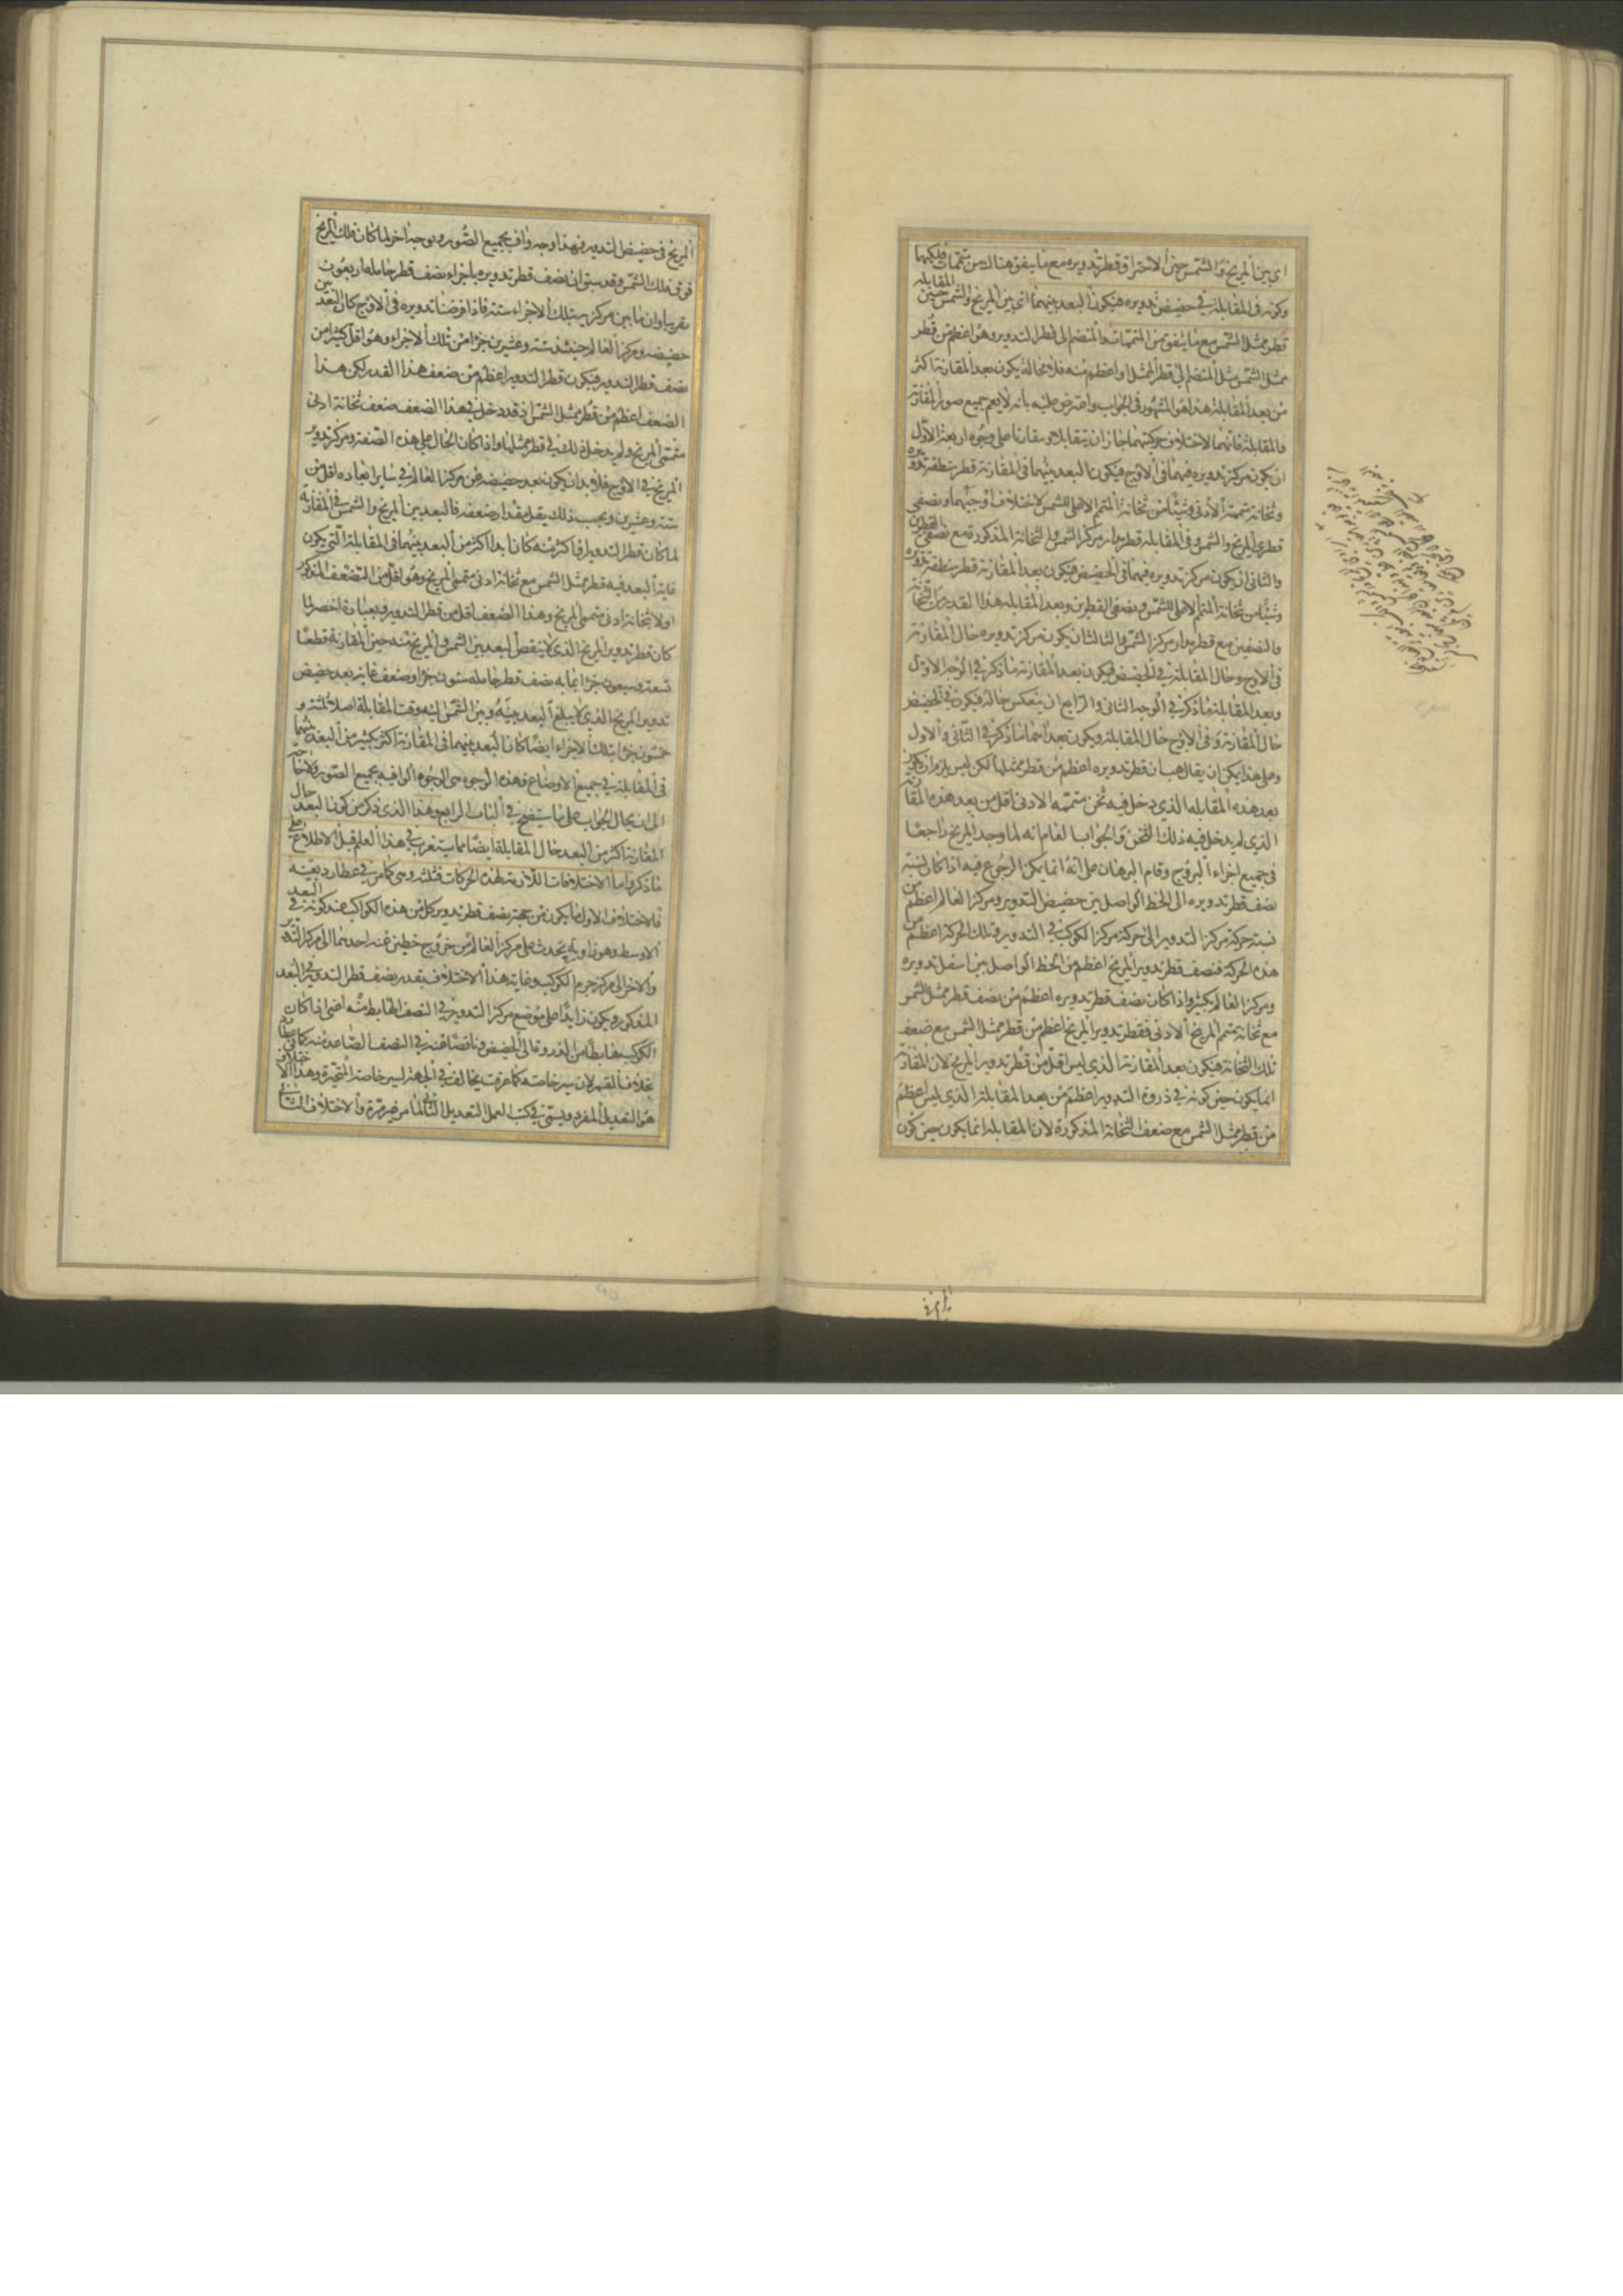 اى بين المريخ والشمس حين الاحتراق قطر تدويره مع ما يتفق هناك من متممات فلكيهما
وكونه فى المقابلة فى حضيض تدويره فيكون البعد بينهما اى بين المريخ والشمس حين المقابلة
قطر ممثل الشمس مع ما يتفق من المتممات والمنضم الى قطر التدوير وهو اعظم من قطر
ممثل الشمس مثل المنضم الى قطر الممثل او اعظم منه فلا محالة يكون بعد المقارنة اكثر
من بعد المقابلة هذا هو المشهور فى الجواب واعترض عليه بانه لا يعم جميع صور المقارنة
والمقابلة فانهما لاختلاف حركتيهما جاز ان يتقابلا ويتقارنا على وجوه اربعة الاول
ان يكون مركز تدويره فيهما فى الاوج فيكون البعد بينهما فى المقارنة قطر منطقة تدويره
وثخانة متممه الادنى وشيئا من ثخانة المتمم الاعلى للشمس لاختلاف اوجيهما ونصفى
قطرى المريخ والشمس وفى المقابلة قطر مدار مركز الشمس والثخانة المذكورة مع نصفى القطرين
والثانى ان يكون مركز تدويره فيهما فى الحضيض فيكون بعد المقارنة قطر منطقة تدويره
وشيئا من ثخانة المتمم الاعلى للشمس ونصفى القطرين وبعد المقابلة هذا القدر من الثخانة
والنصفين مع قطر مدار مركز الشمس والثالث ان يكون مركز تدويره حال المقارنة
فى الاوج وحال المقابلة فى الحضيض فيكون بعد المقارنة ما ذكر فى الوجه الاول
وبعد المقابلة ما ذكر فى الوجه الثانى والرابع ان ينعكس حاله فيكون فى الحضيض
حال المقارنة وفى الاوج حال المقابلة ويكون بعداهما ما ذكر فى الثانى والاول
وعلى هذا يمكن ان يقال هب ان قطر تدويره اعظم من قطر ممثلها لكن ليس يلزم ان يكون
بعد هذه المقابلة الذى دخل فيه ثخن متممه الادنى اقل من بعد هذه المقارنة
الذى لم يدخل فيه ذلك الثخن والجواب العام انه لما وجد المريخ راجعا
فى جميع اجزاء البروج وقام البرهان على انه انما يمكن الرجوع فيه اذا كان نسبة
نصف قطر تدويره الى الخط الواصل بين حضيض التدوير ومركز العالم اعظم من
نسبة حركة مركز التدوير الى حركة مركز الكوكب فى التدوير وتلك الحركة اعظم من
هذه الحركة فنصف قطر تدوير المريخ اعظم من الخط الواصل بين اسفل تدويره
ومركز العالم بكثير واذا كان نصف قطر تدويره اعظم من نصف قطر ممثل الشمس
مع ثخانة متمم المريخ الادنى فقطر تدوير المريخ اعظم من قطر ممثل الشمس مع ضعف
تلك الثخانة فيكون بعد المقارنة الذى ليس اقل من قطر تدوير المريخ لان المقارنة
انما يكون حين كونه فى ذروة التدوير اعظم من بعد المقابلة الذى ليس اعظم
من قطر ممثل الشمس مع ضعف الثخانة المذكورة لان المقابلة انما يكون حين كون
المريخ فى حضيض التدوير فهذا وجه واف بجميع الصور وبوجه اخر لما كان فلك المريخ
فوق فلك الشمس وقد سبق ان نصف قطر تدويره باجزاء نصف قطر حامله اربعون
تقريبا وان ما بين مركزيه بتلك الاجزاء ستة فاذا فرضنا تدويره فى الاوج كان البعد بين
حضيضه ومركز العالم حينئذ ستة وعشرين جزءا من تلك الاجزاء وهو اقل كثيرا من
نصف قطر التدوير فيكون قطر التدوير اعظم من ضعف هذا القدر لكن هذا
الضعف اعظم من قطر ممثل الشمس اذ قد دخل فى هذا الضعف ضعف ثخانة ادنى
متممى المريخ ولم يدخل ذلك فى قطر ممثلها واذا كان الحال على هذه الصفة ومركز تدوير
المريخ فى الاوج فلا بد ان يكون بعد حضيضه عن مركز العالم فى ساير ابعاده اقل من
ستة وعشرين وبحسب ذلك يقل مقدار ضعفه فالبعد بين المريخ والشمس فى المقارنة
لما كان قطر التدوير او اكثر منه كان ابدا اكثر من البعد بينهما فى المقابلة التى يكون
غاية البعد فيه قطر ممثل الشمس مع ثخانة ادنى متممى المريخ وهو اقل من الضعف المذكور
اولا بثخانة ادنى متممى المريخ وهذا الضعف اقل من قطر التدوير وبعبارة اخصر لما
كان قطر تدوير المريخ الذى لا ينقص البعد بين الشمس والمريخ منه حين المقارنة قطعا
تسعة وسبعون جزءا بما به نصف قطر حامله ستون جزءا وضعف غاية بعد حضيض
تدوير المريخ الذى لا يبلغ البعد بينه وبين الشمس اليه وقت المقابلة اصلا ثلثة و
خمسون جزءا بتلك الاجزاء ايضا كان البعد بينهما فى المقارنة اكثر بكثير من البعد بينهما
فى المقابلة فى جميع الاوضاع فهذه الوجوه هى الوجوه الوافية بجميع الصور ولا حاجة
الى ان يحال الجواب على ما سيتضح فى الباب الرابع وهذا الذى ذكر من كون البعد حال
المقارنة اكثر من البعد حال المقابلة ايضا مما يستغرب فى هذا العلم قبل الاطلاع على
ما ذكر واما الاختلافات اللازمة لهذه الحركات فثلثة وهى كما مر فى عطارد بعينه
فالاختلاف الاول ما يكون من جهة نصف قطر تدوير كل من هذه الكواكب عند كونه فى البعد
الاوسط وهو زاوية يحدث على مركز العالم من خروج خطين عنه احدهما الى مركز التدوير
والاخر الى مركز جرم الكوكب وغاية هذا الاختلاف بقدر نصف قطر التدوير فى البعد
المذكور ويكون زايدا على موضع مركز التدوير فى النصف الهابط منه اعنى اذا كان
الكوكب هابطا من الذروة الى الحضيض وناقصا عنه فى النصف الصاعد منه كما فى عطارد
بخلاف القمر لان سير خاصته كما عرفت يخالف فى الجهة لسير خاصة المتحيرة وهذا الاختلاف
هو التعديل المفرد ويسمى فى كتب العمل التعديل الثانى لما مر غير مرة والاختلاف الثانى